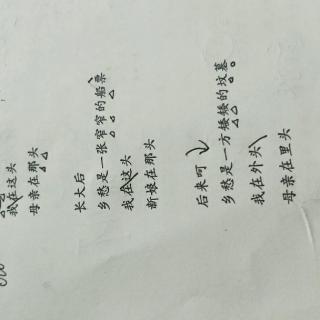 我在这头
母亲在那头
长大后
乡愁是一张窄窄的船票
我在这头
新娘在那头
后来呵
乡愁是一方矮矮的坟墓
我在外头
母亲在里头